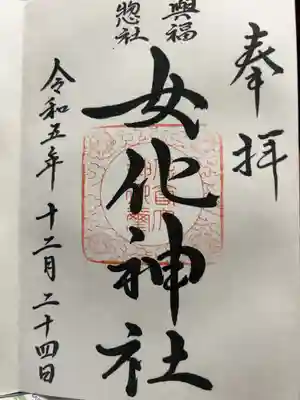 奉拝
興福
惣社
女化神社
令和五年 十二月 二十四日